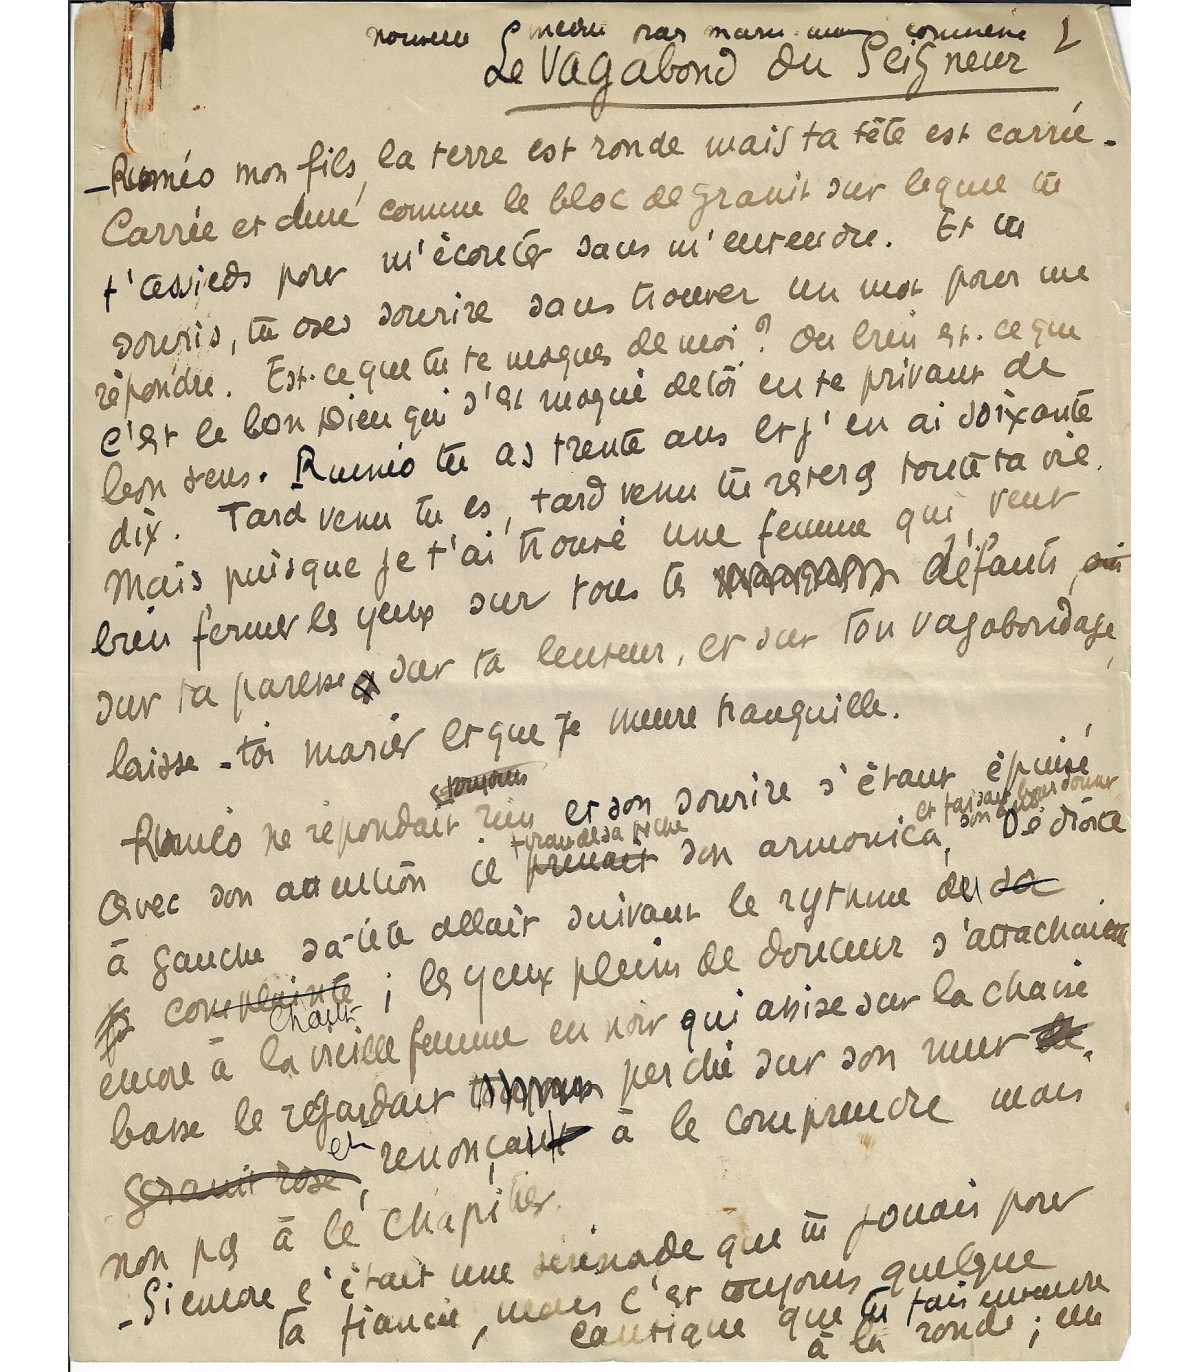 nouvelle
Le Vagabond du Seigneur
- Roméo mon fils, la terre est ronde mais ta tête est carrée -
Carrée et dure comme le bloc de granit sur lequel tu
t'assieds pour m'écouter sans m'entendre. Et tu
souris, tu oses sourire sans trouver un mot pour me
répondre. Est-ce que tu te moques de moi ? Ou bien est-ce que
c'est le bon Dieu qui s'est moqué de toi en te privant de
bon sens. Roméo tu as trente ans et j'en ai soixante
dix. Tard venu tu es, tard venu tu resteras toute ta vie.
Mais puisque je t'ai trouvé une femme qui veut
bien fermer les yeux sur tous tes défauts,
sur ta paresse sur ta lenteur, et sur ton vagabondage,
laisse-toi marier et que je meure tranquille.
toujours
Roméo ne répondait rien et son sourire s'étant épuisé
tirant de sa poche et faisant bourdonner
avec son attention il prenait son armonica, De droite
à gauche sa tête allait suivant le rythme de sa
complainte ; les yeux pleins de douceur s'attachaient
chant
encore à la vieille femme en noir qui assise sur la chaise
basse le regardait perché sur son mur
granit rose, et renonçait à le comprendre mais
non pas à le chapitrer.
- Si encore c'était une sérénade que tu jouais pour
ta fiancée, mais c'est toujours quelque
cantique que tu fais entendre
à la ronde ; en